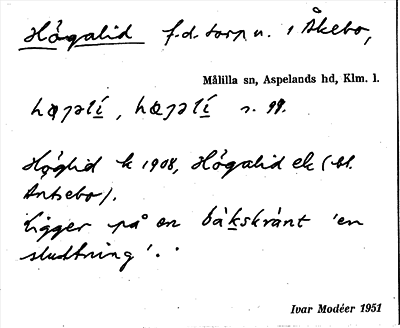 Högalid f.d. torp u. i Åkebo,
Målilla sn, Aspelands hd, Klm. l.
s. 99.
Höglid k 1908, Högalid ek (bl.
Ankebo).
Ligger på en bakskrant 'en
sluttning'.
Ivar Modéer 1951